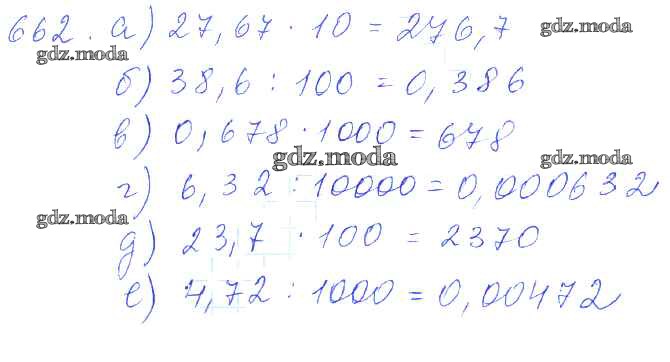 662. а) 27,67 · 10 = 276,7 gdz.moda
gdz.moda
б) 38,6 : 100 = 0,386
в) 0,678 · 1000 = 678
gdz.moda gdz.moda
г) 6,32 : 10000 = 0,000632
gdz.moda
д) 23,7 · 100 = 2370
е) 4,72 : 1000 = 0,00472